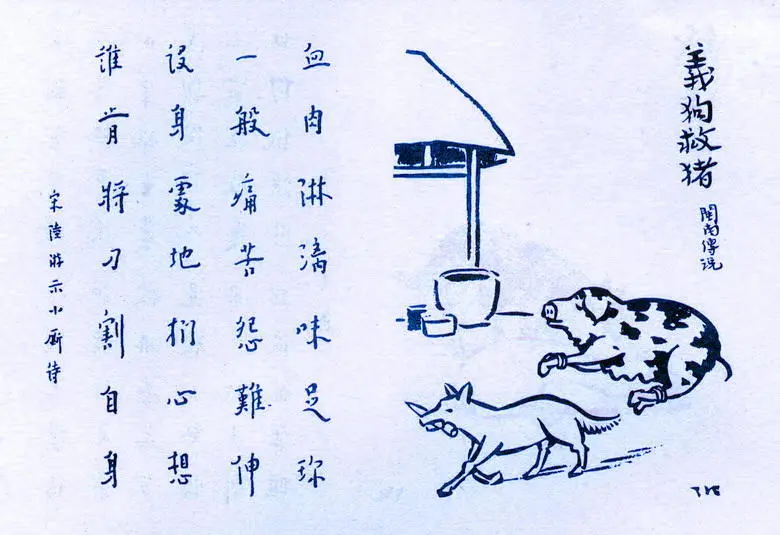 義狗救猪
閩南傳説
血肉淋漓味足珍
一般痛苦怨難伸
設身處地捫心想
誰肯將刀割自身
宋陸游示小厮詩
TK